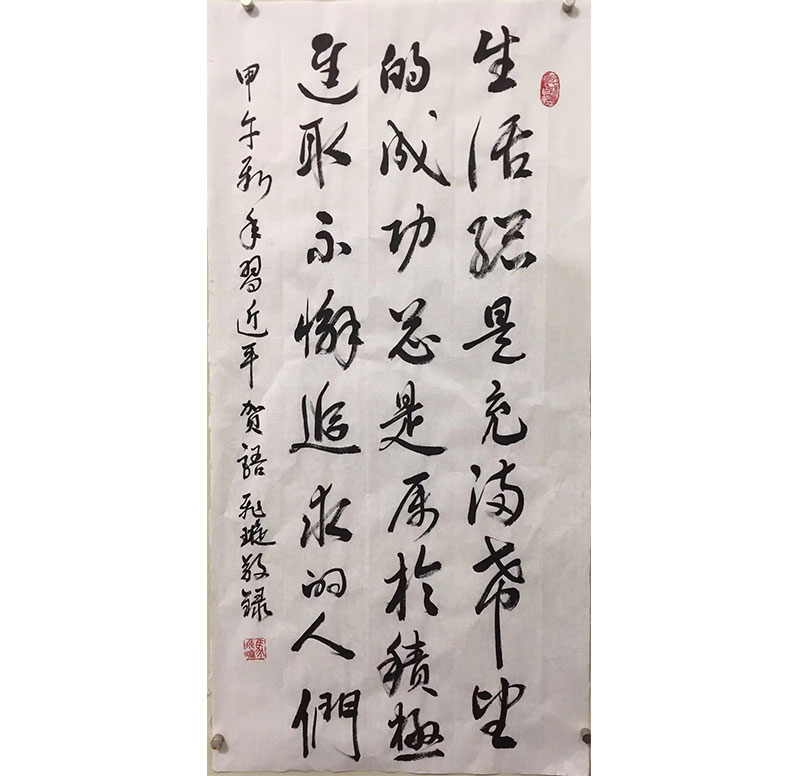 生活總是充满希望
的成功总是属於積極
進取不懈追求的人們
甲午新年習近平贺語 飛璇敬録